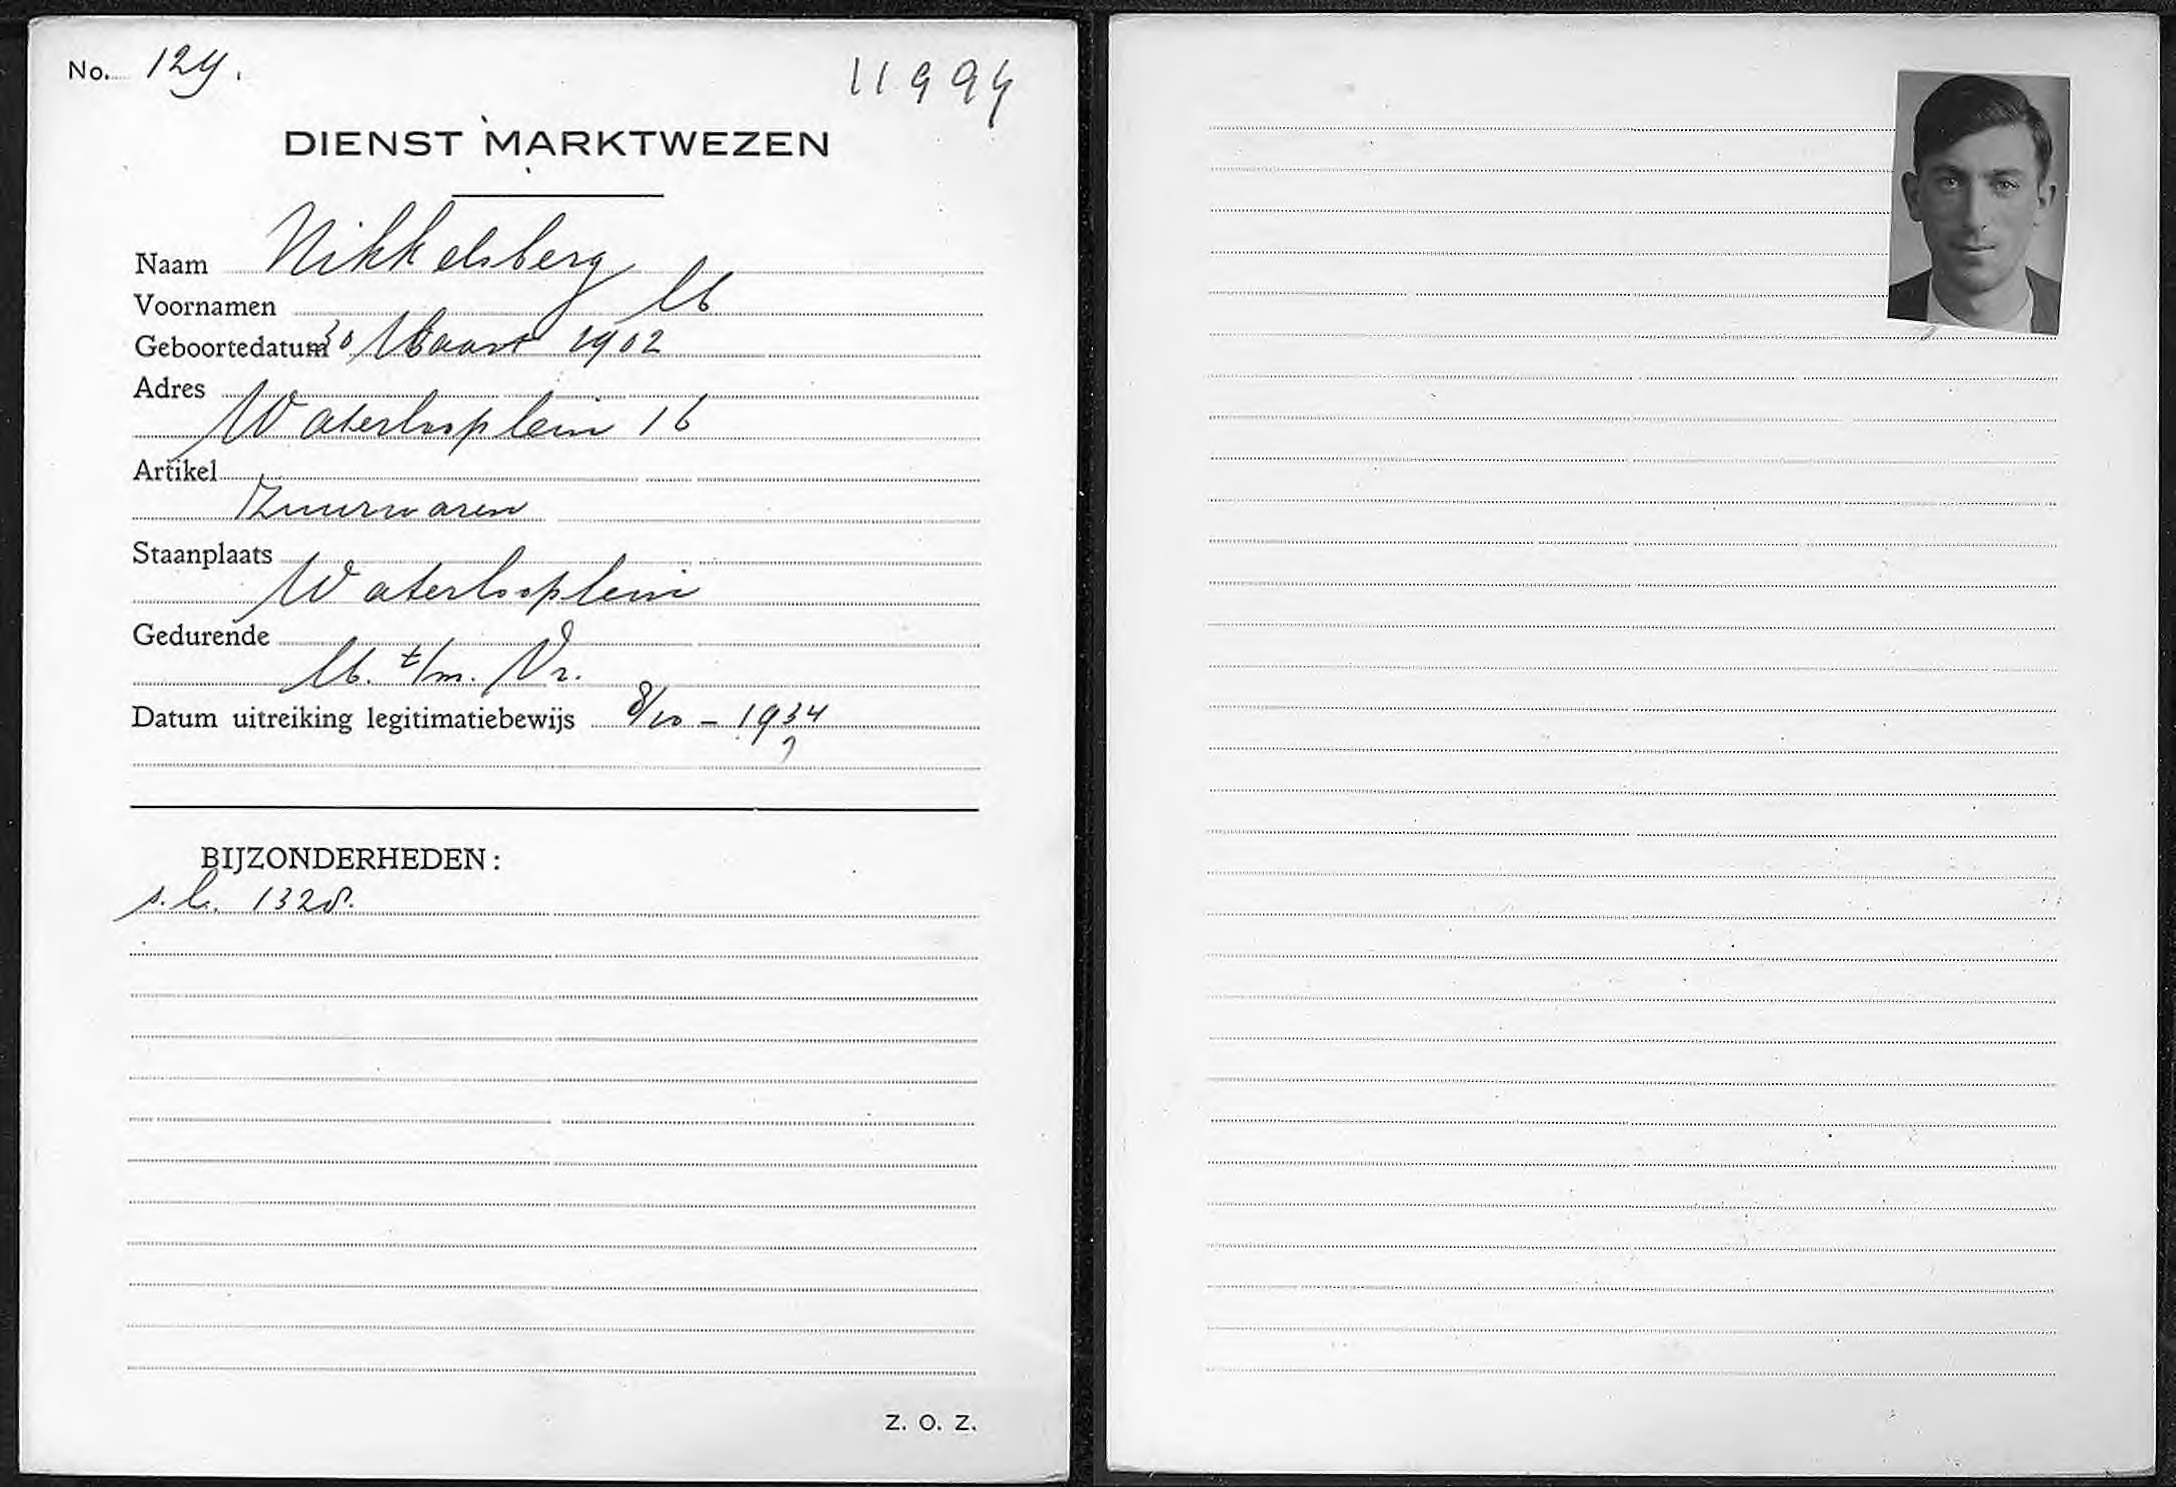 No. 124.
11994
DIENST MARKTWEZEN
Naam Nikkelsberg
Voornamen M
Geboortedatum 30 Maart 1902
Adres
Waterlooplein 16
Artikel
Zuurwaren
Staanplaats
Waterlooplein
Gedurende
M. t/m. Vr.
Datum uitreiking legitimatiebewijs 8/10 - 1934
BIJZONDERHEDEN:
s.b. 1328.
Z. O. Z.